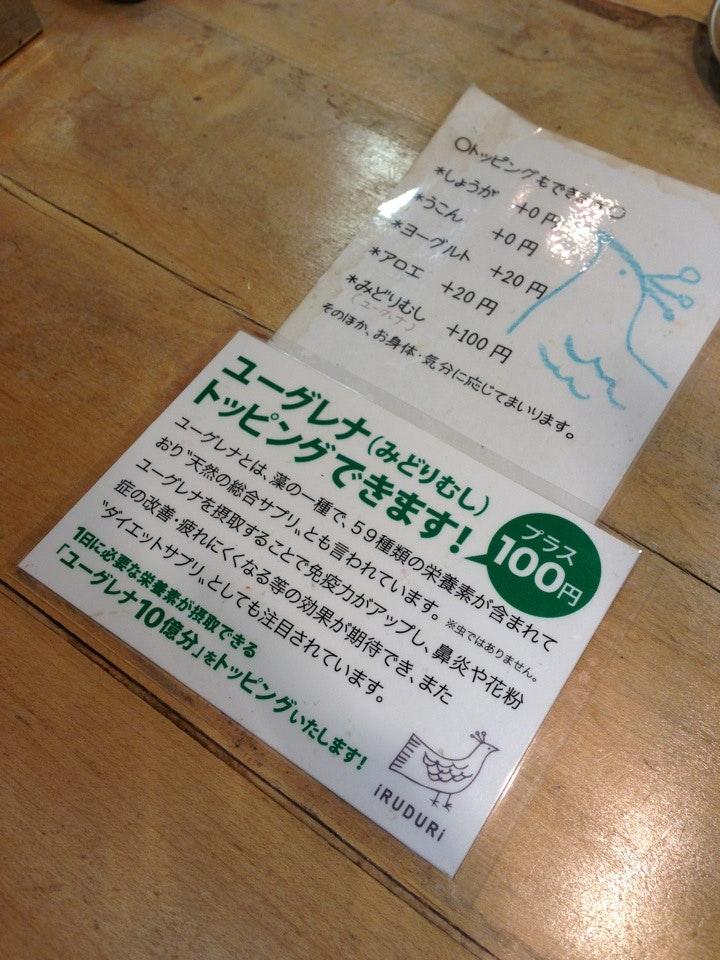 ○トッピングもできます○
*しょうが +0円
*うこん +0円
*ヨーグルト +20円
*アロエ +20円
*みどりむし +100円
(ユーグレナ)
そのほか、お身体・気分に応じてまいります。
ユーグレナ(みどりむし)
トッピングできます!
プラス
100円
ユーグレナとは、藻の一種で、59種類の栄養素が含まれて
おり〝天然の総合サプリ〟とも言われています。※虫ではありません。
ユーグレナを摂取することで免疫力がアップし、鼻炎や花粉
症の改善・疲れにくくなる等の効果が期待でき、また
〝ダイエットサプリ〟としても注目されています。
1日に必要な栄養素が摂取できる
「ユーグレナ10億分」をトッピングいたします!
iRUDURi